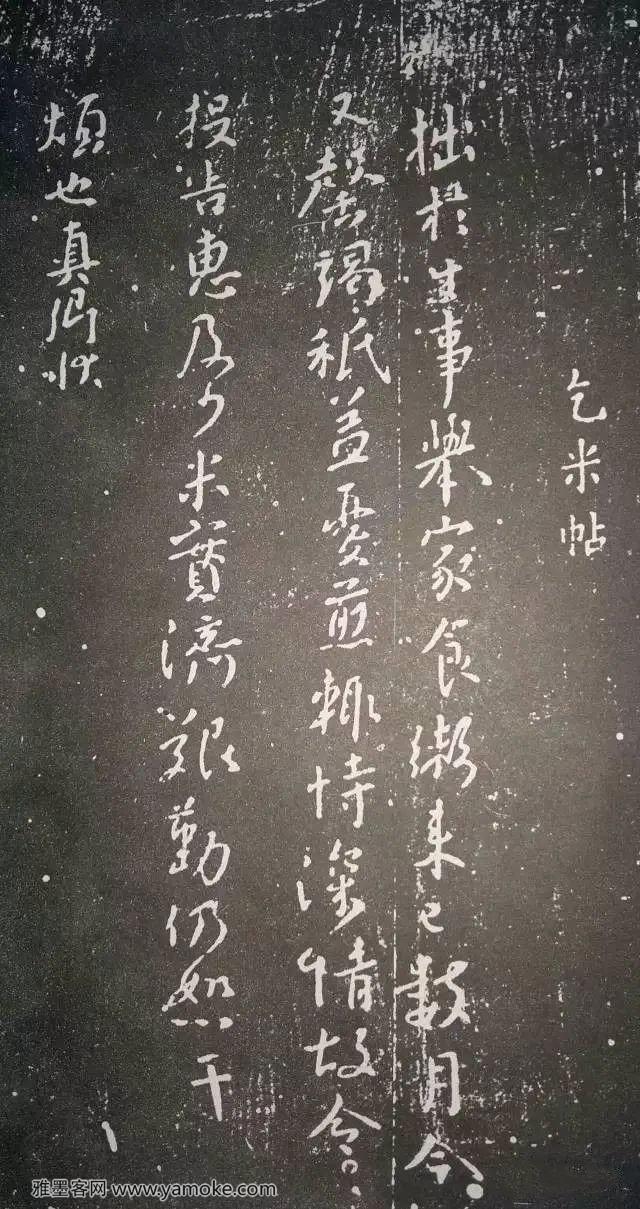 乞米帖
拙於生事舉家食粥來已數月今
又罄竭秖益憂煎輒恃深情故令
投告惠及少米實濟艱勤仍恕干
煩也真卿狀
雅墨客网 www.yamoke.com